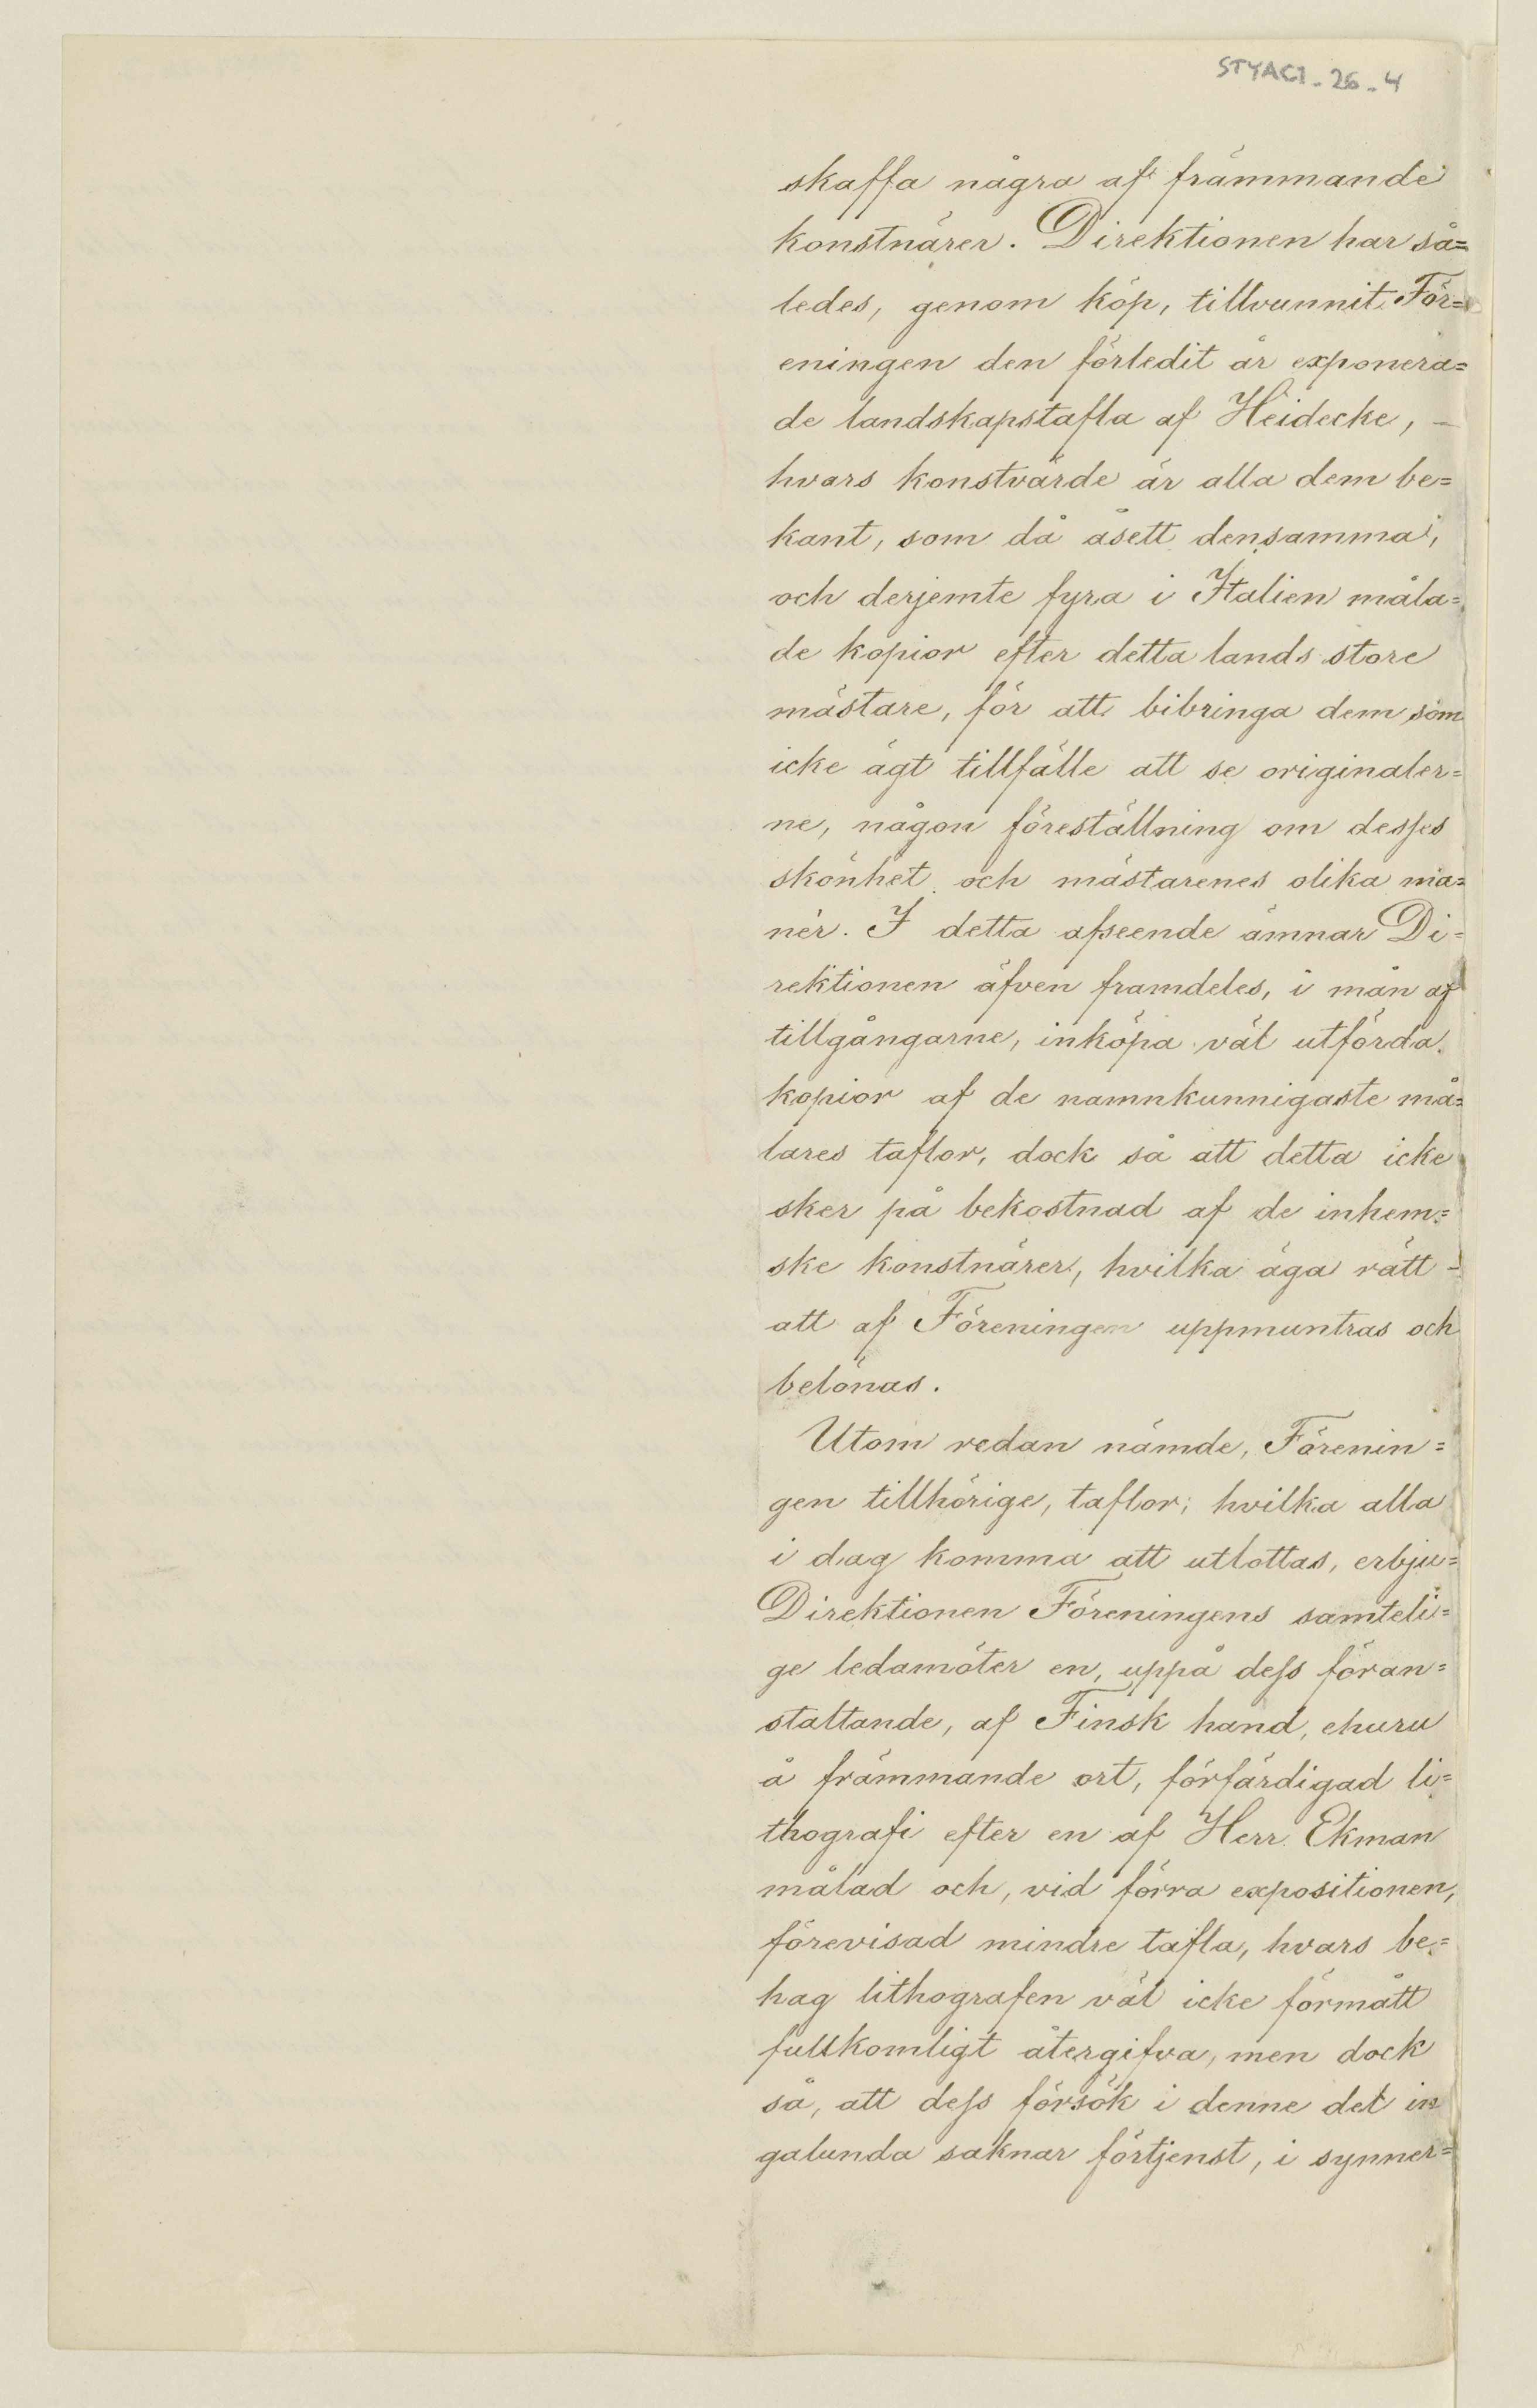 STYAC1-26-4
skaffa några af främmande
konstnärer. Direktionen har så=
ledes, genom köp, tillvunnit För=
eningen den förledit år exponera=
de landskapstafla af Heidecke, –
hvars konstvärde är alla dem be=
kant, som då åsett densamma,
och derjemte fyra i Italien måla=
de kopior efter detta lands store
mästare, för att bibringa dem som
icke ägt tillfälle att se originaler=
ne, någon föreställning om desses
skönhet och mästarenes olika ma=
nér. I detta afseende ämnar Di=
rektionen äfven framdeles, i mån af
tillgångarne, inköpa väl utförda
kopior af de namnkunnigaste må=
lares taflor, dock så att detta icke
sker på bekostnad af de inhem=
ske konstnärer, hvilka äga rätt –
att af Föreningen uppmuntras och
belönas.
Utom redan nämde, Förenin=
gen tillhörige, taflor, hvilka alla
i dag komma att utlottas, erbju=
Direktionen Föreningens samteli=
ge ledamöter en, uppå dess föran=
staltande, af Finsk hand, ehuru
å främmande ort, förfärdigad li=
thografi efter en af Herr Ekman
målad och, vid förra expositionen,
förevisad mindre tafla, hvars be=
hag lithografen väl icke förmått
fullkomligt återgifva, men dock
så, att dess försök i denne det in
galunda saknar förtjenst, i synner=